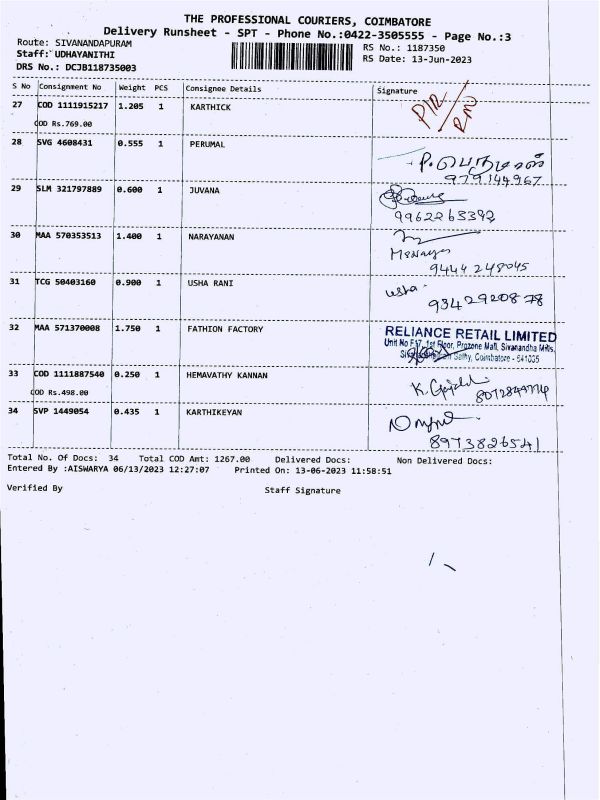 THE PROFESSIONAL COURIERS, COIMBATORE
Delivery Runsheet - SPT - Phone No.:0422-3505555 - Page No.:3
Route: SIVANANDAPURAM RS No.: 1187350
Staff: UDHAYANITHI RS Date: 13-Jun-2023
DRS No.: DCJB118735003
S No Consignment No Weight PCS Consignee Details Signature
27 COD 1111915217 1.205 1 KARTHICK
COD Rs.769.00
28 SVG 4608431 0.555 1 PERUMAL
P. பெருமாள்
979144967
29 SLM 321797889 0.600 1 JUVANA
9962263392
30 MAA 570353513 1.400 1 NARAYANAN
9444248045
31 TCG 50403160 0.900 1 USHA RANI usha
9342920878
32 MAA 571370008 1.750 1 FATHION FACTORY RELIANCE RETAIL LIMITED
Unit No F17, 1st Floor, Prozone Mall, Sivanandha Mills,
Sathy, Coimbatore - 641035
33 COD 1111887540 0.250 1 HEMAVATHY KANNAN
COD Rs.498.00
34 SVP 1449054 0.435 1 KARTHIKEYAN
8973826541
Total No. Of Docs: 34 Total COD Amt: 1267.00 Delivered Docs: Non Delivered Docs:
Entered By :AISWARYA 06/13/2023 12:27:07 Printed On: 13-06-2023 11:58:51
Verified By Staff Signature